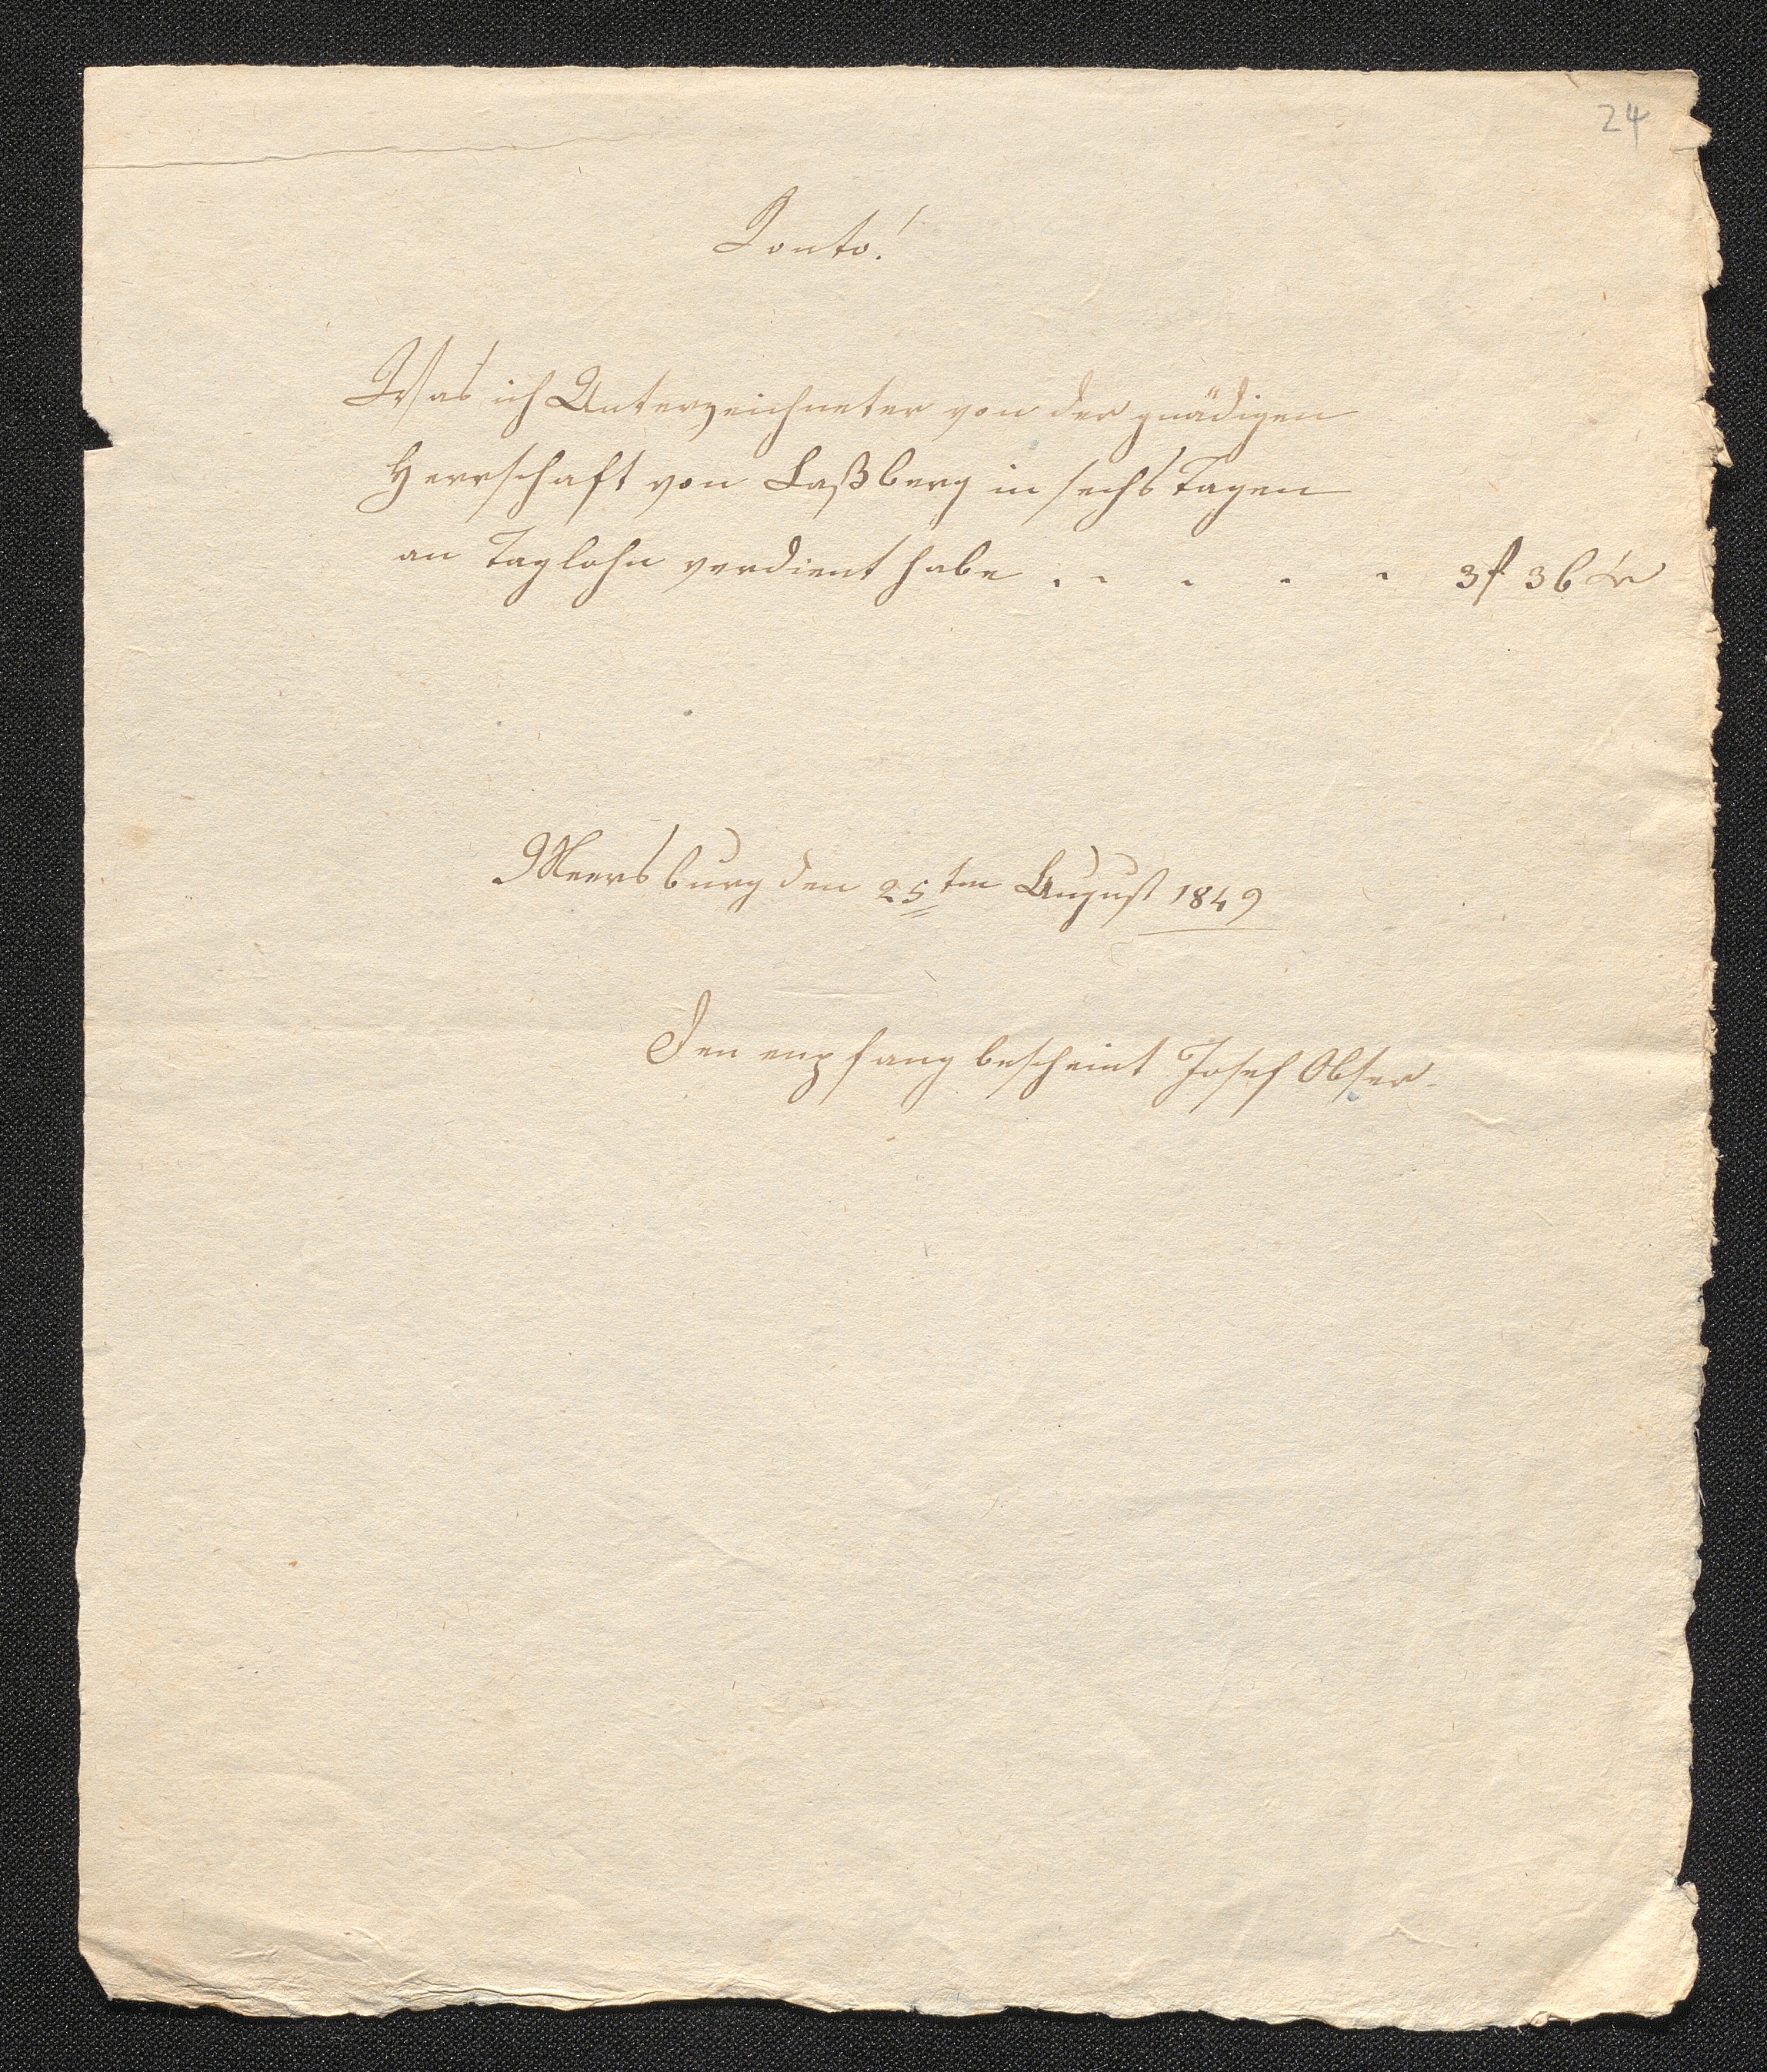 24
Conto!
Was ich Unterzeichneter von der gnädigen
Herrschaft von Laßberg in sechs Tagen
an Taglohn verdient habe . . . . . 3 f 36 kr
Meersburg den 25ten August 1849
Den enpfang bescheint Josef Obser.